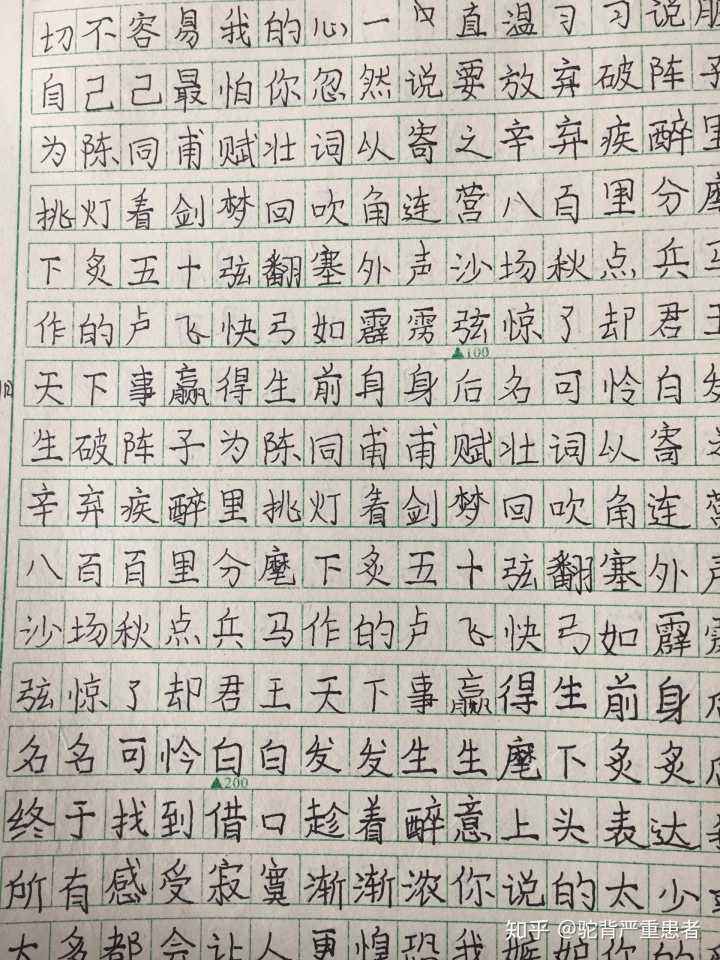 切不容易我的心一直温习习说服
自己己最怕你忽然说要放弃破阵子
为陈同甫赋壮词以寄之辛弃疾醉里
挑灯看剑梦回吹角连营八百里分麾
下炙五十弦翻塞外声沙场秋点兵马
作的卢飞快弓如霹雳弦惊了却君王
▲100
天下事赢得生前身身后名可怜白发
生破阵子为陈同甫甫赋壮词以寄之
辛弃疾醉里挑灯看剑梦回吹角连营
八百百里分麾下炙五十弦翻塞外声
沙场秋点兵马作的卢飞快弓如霹雳
弦惊了却君王天下事赢得生前身后
名名可怜白白发发生生麾下炙炙
▲200
终于找到借口趁着醉意上头表达我
所有感受寂寞渐渐浓你说的太少或
太多都会让人更惶恐我嫉妒你的
知乎 @驼背严重患者